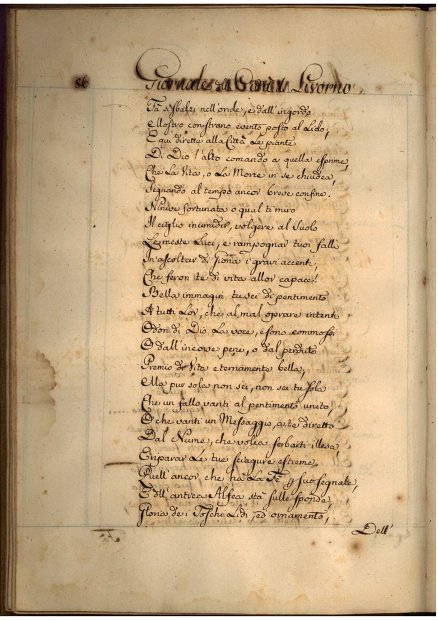 86 Giornale Livorno
Fà sbalzi nell'onde, e dall'ingordo
Mostro con strano evento posto al Lido,
E qui dirette alla Città Le piante
Di Dio l'alto comando a quella esprime,
Che La Vita, o La Morte in se chiudea,
Segnando al tempo ancor breve confine.
Ninive fortunata o qual ti miro
Il ciglio inumidir, volgere al Suolo
Le meste Luci, e rampognar tuoi falli
In ascoltar di Giona i gravi accenti,
Che feron te di vita allor capace!
Bella immagin tu sei di pentimento
A tutti Lor, che al mal oprare intenti
Odon di Dio La voce, e sono commossi
O dall'incorse pene, o dal perduto
Premio di Vita eternamente bella,
Ma pur sola non sei, non sei tu sola
Che un fallo vanti al pentimento unito,
E che vanti un Messaggio, a te diretto
Dal Nume, che volea serbarti illesa,
E riparar Le tue sciagure estreme,
Quell'ancor che hà La Fè suo segnale,
E dell'antica Alfea stà sulle sponde,
Gloria dei Toschi Lidi, ed ornamento,
Dell'